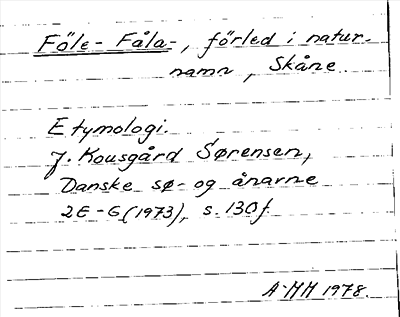 Föle- Fåla-, förled i natur-
namn, Skåne.
Etymologi.
J. Kousgård Sørensen,
Danske sø- og ånavne
2 E-G (1973), s. 130f
A-MH 1978.